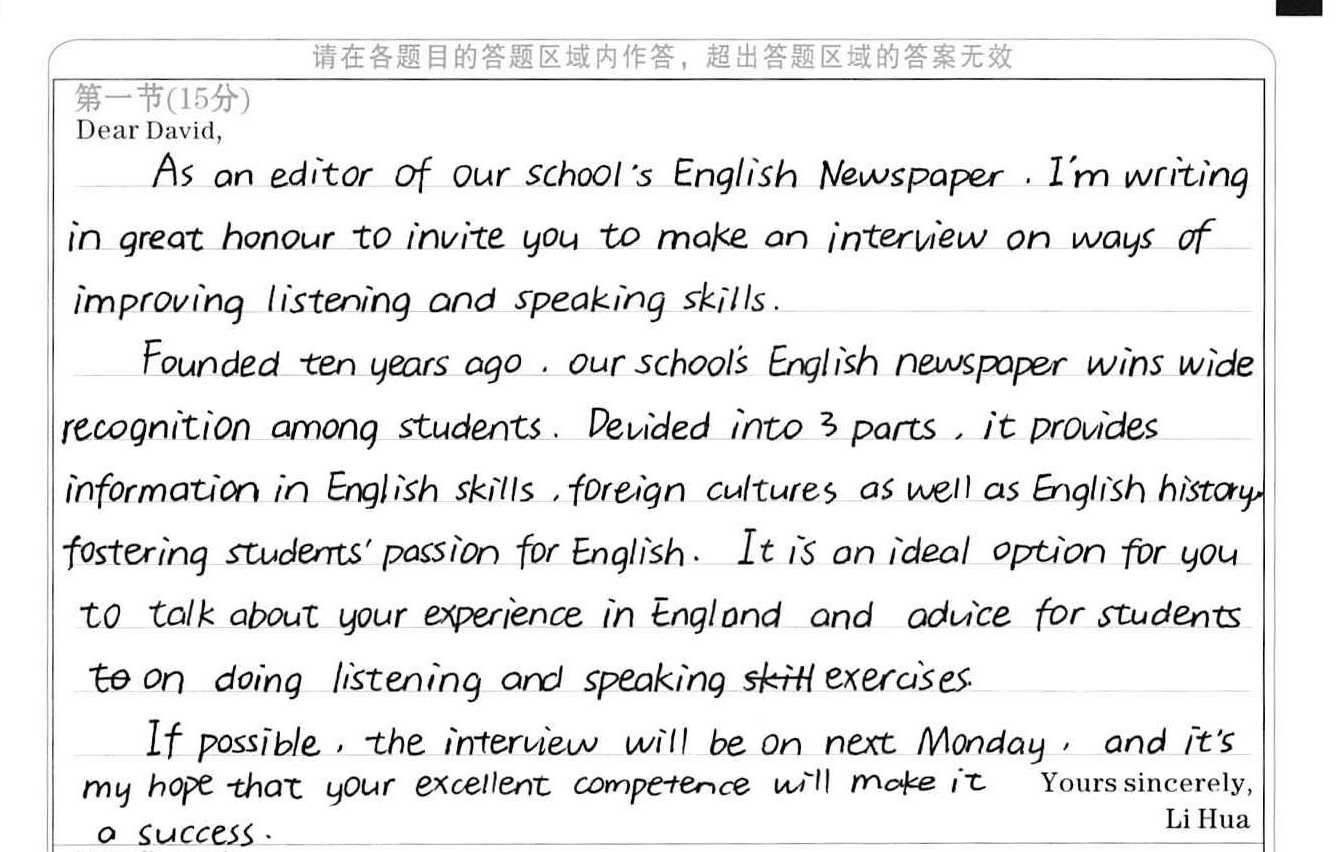 请在各题目的答题区域内作答，超出答题区域的答案无效
第一节(15分)
Dear David,
As an editor of our school's English Newspaper, I'm writing
in great honour to invite you to make an interview on ways of
improving listening and speaking skills.
Founded ten years ago, our school's English newspaper wins wide
recognition among students. Devided into 3 parts, it provides
information in English skills, foreign cultures as well as English history,
fostering students' passion for English. It is an ideal option for you
to talk about your experience in England and advice for students
to on doing listening and speaking skill exercises.
If possible, the interview will be on next Monday, and it's
my hope that your excellent competence will make it
a success.
Yours sincerely,
Li Hua